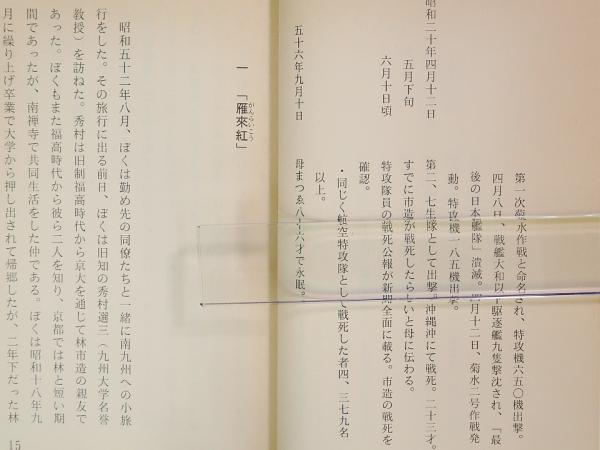 第一次菊水作戦と命名され、特攻機六五〇機出撃。
四月八日、戦艦大和以下駆逐艦九隻撃沈され、「最
後の日本艦隊」潰滅。四月十二日、菊水二号作戦発
動。特攻機一八五機出撃。
昭和二十年四月十二日
第二、七生隊として出撃。沖縄沖にて戦死。二十三才。
五月下旬
すでに市造が戦死したらしいと母に伝わる。
六月十日頃
特攻隊員の戦死公報が新聞全面に載る。市造の戦死を
確認。
・同じく航空特攻隊として戦死した者四、三七九名
以上。
五十六年九月十日
母まつゑ八十六才で永眠。
一 「雁來紅」
がんらいこう
昭和五十二年八月、ぼくは勤め先の同僚たちと一緒に南九州への小旅
行をした。その旅行に出る前日、ぼくは旧知の秀村選三（九州大学名誉
教授）を訪ねた。秀村は旧制福高時代から京大を通じて林市造の親友で
あった。ぼくもまた福高時代から彼ら二人を知り、京都では林と短い期
間であったが、南禅寺で共同生活をした仲である。ぼくは昭和十八年九
月に繰り上げ卒業で大学から押し出されて帰郷したが、二年下だった林
15